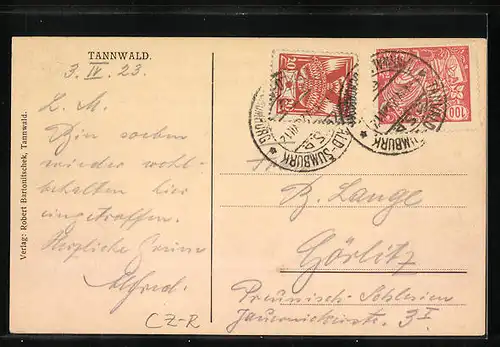 TANNWALD.
3. IV. 23.
L. M.
Bin soeben
wieder wohl-
behalten hier
eingetroffen.
Herzliche Grüsse
Alfred.
CZ-R
Verlag: Robert Bartonitschek, Tannwald.
20
100
TANNWALD-ŠUMBURK
B. Lange
Görlitz
Preussisch-Schlesien
Jauernickerstr. 3 I